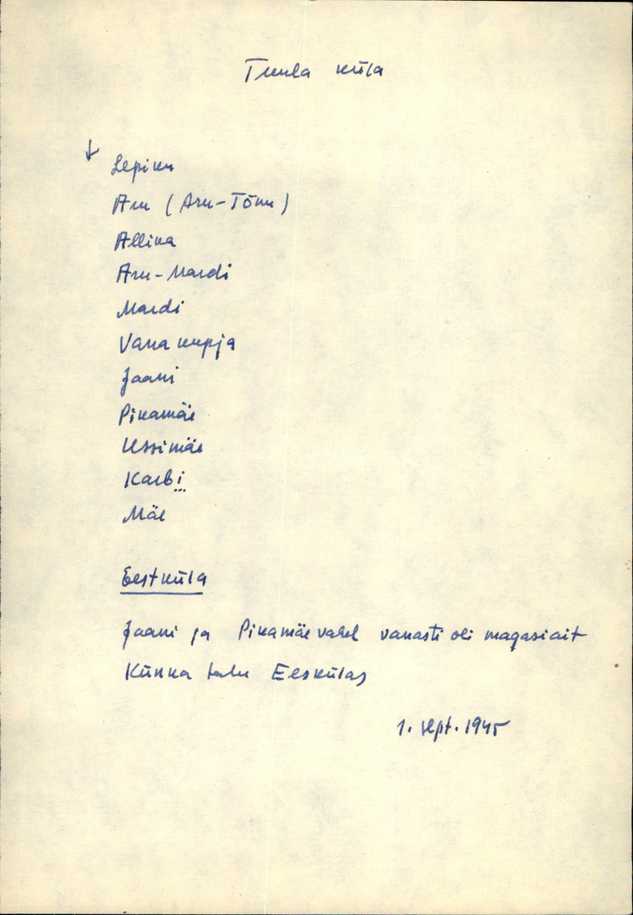 Tuula küla
↓ Lepiku
Aru (Aru-Tõnu)
Allika
Aru-Mardi
Mardi
Vana kupja
Jaani
Pikamäe
Ussimäe
Karbi
Mäe
Eestküla
Jaani ja Pikamäe vahel vanasti oli magasiait
Künka talu Eeskülas
1. sept. 1945